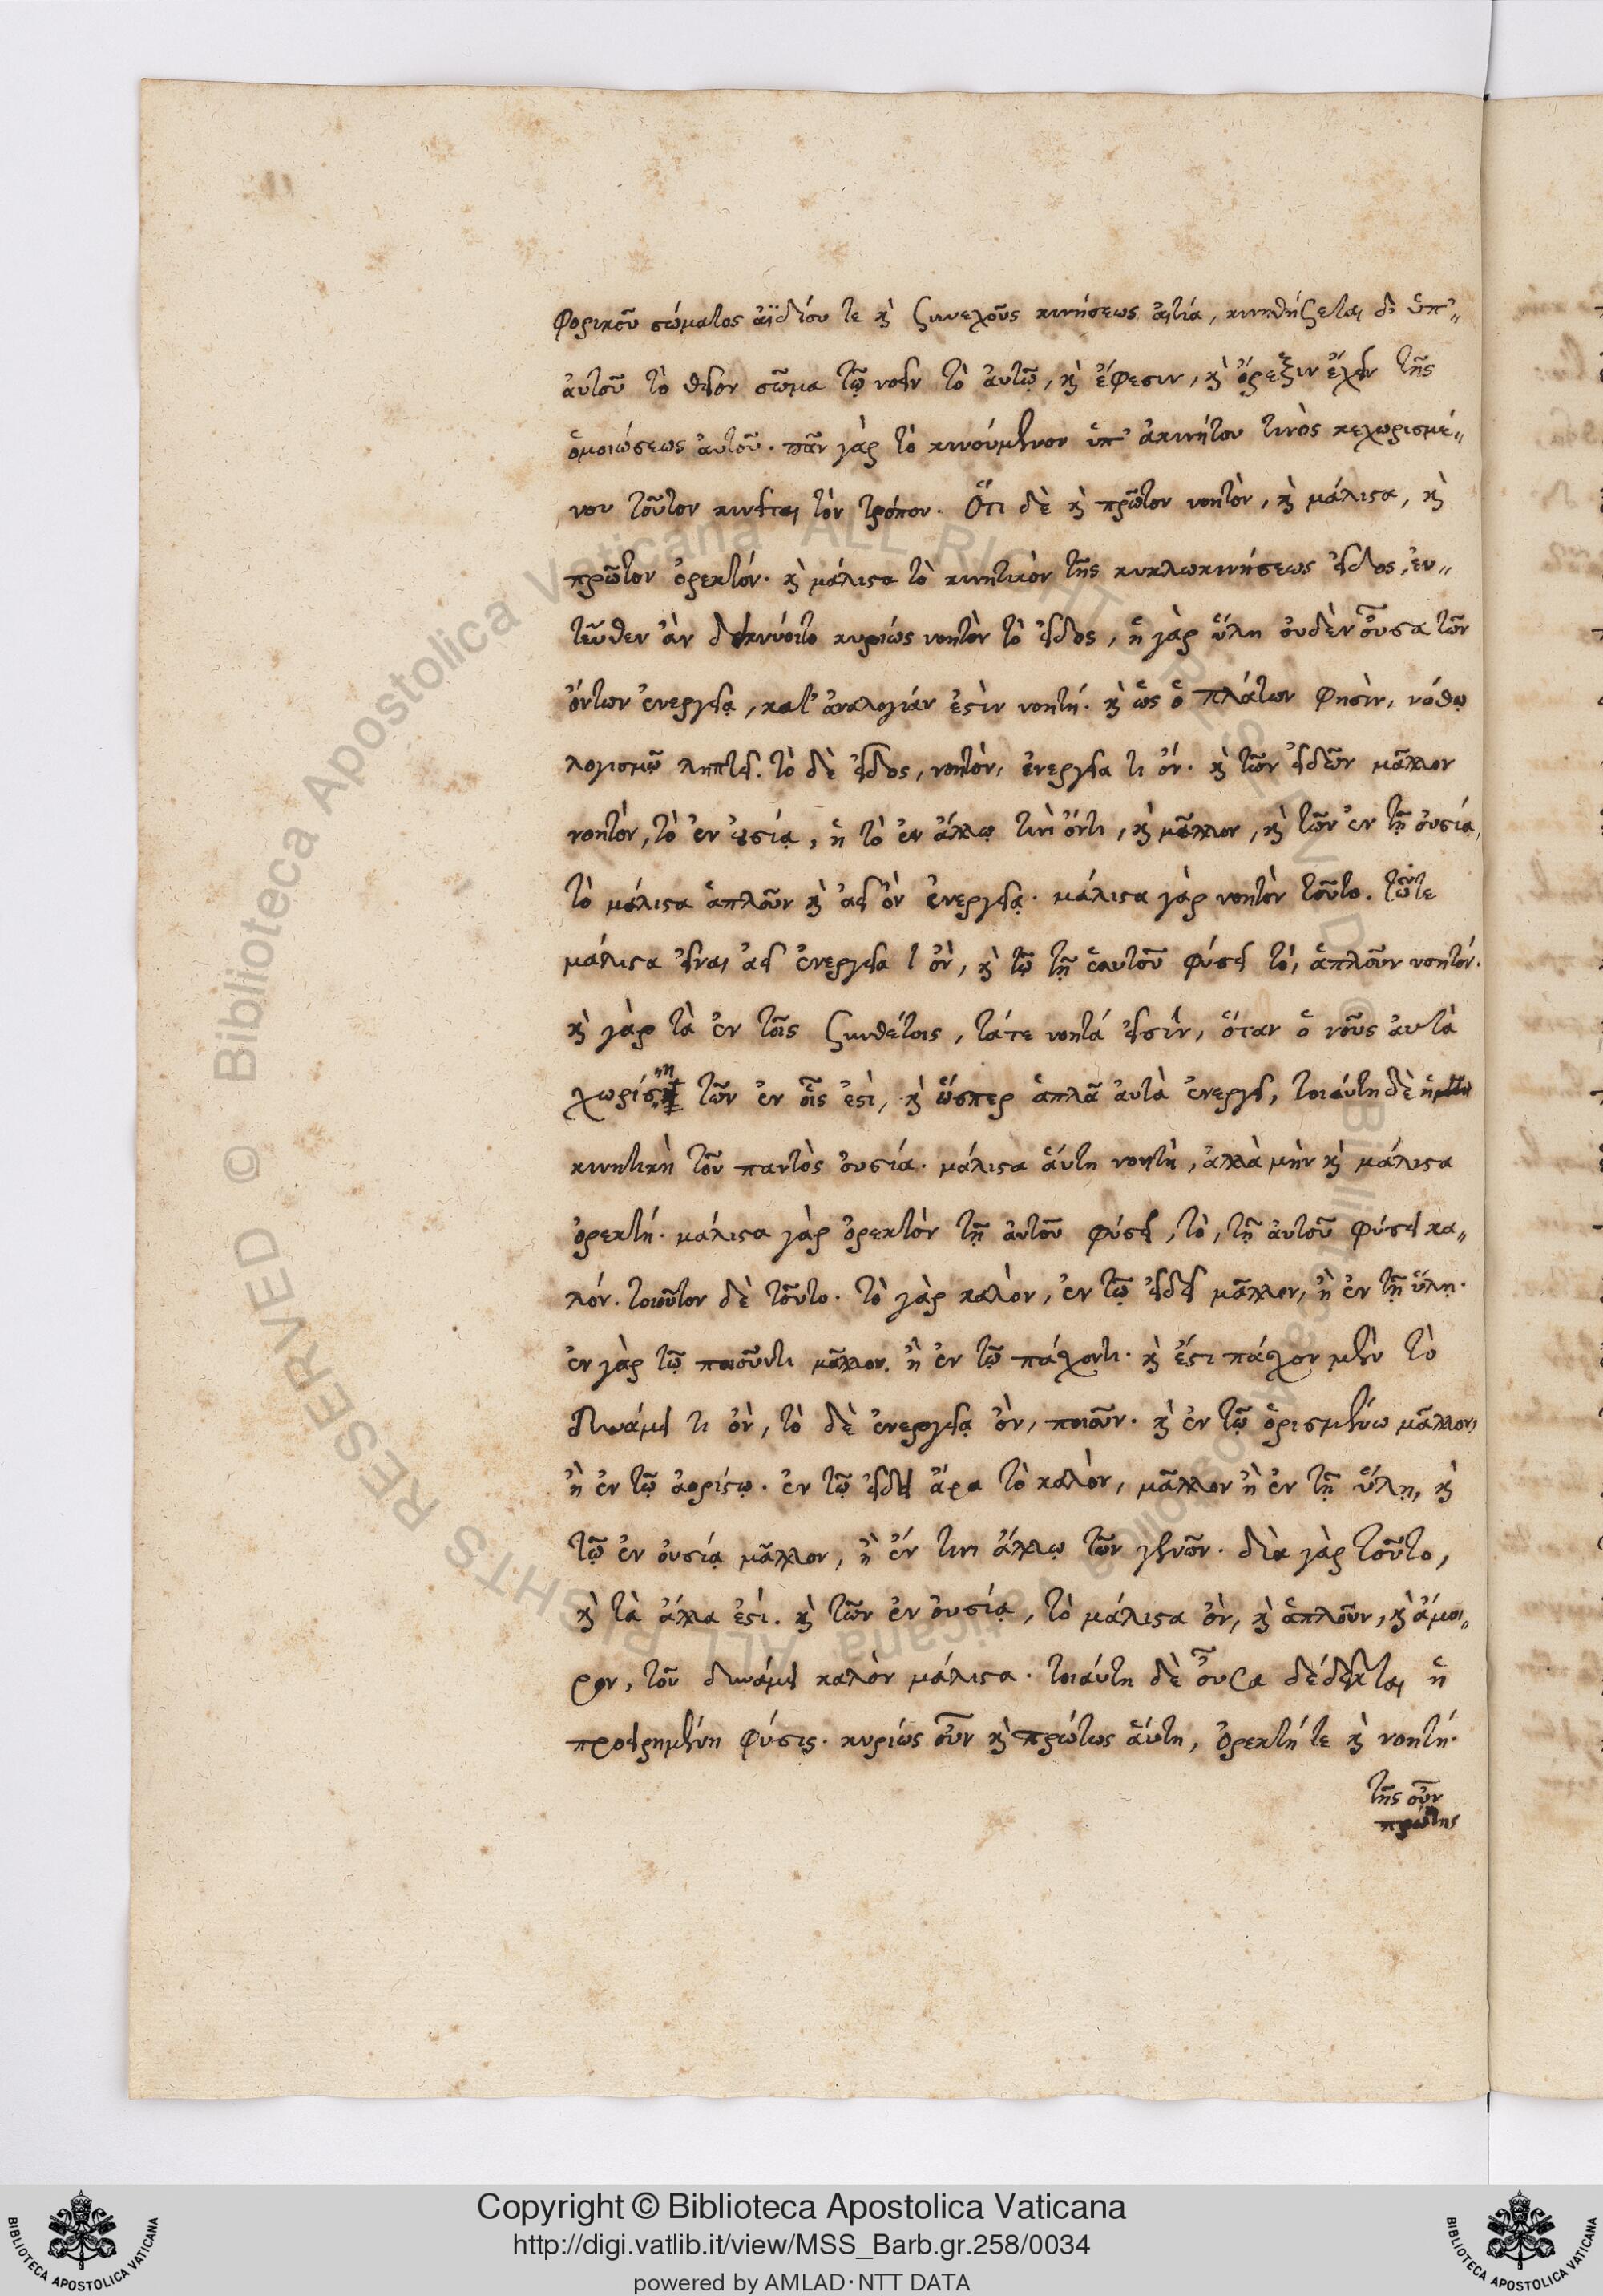 φορικοῦ σώματος ἀϊδίου τε καὶ συνεχοῦς κινήσεως αἰτία, κινηθήσεται δ' ὑπ'
αὐτοῦ τὸ θεῖον σῶμα τῷ νοεῖν τὸ αὐτῷ, καὶ ἔφεσιν, καὶ ὄρεξιν ἔχειν τῆς
ὁμοιώσεως αὐτοῦ. πᾶν γὰρ τὸ κινούμενον ὑπ' ἀκινήτου τινὸς κεχωρισμέ„
νου τοῦτον κινεῖται τὸν τρόπον. Ὅτι δὲ καὶ πρῶτον νοητὸν, καὶ μάλιστα, καὶ
πρῶτον ὀρεκτόν. καὶ μάλιστα τὸ κινητικὸν τῆς κυκλωκινήσεως εἶδος, ἐν„
τεῦθεν ἂν δεικνύοιτο κυρίως νοητὸν τὸ εἶδος, ἡ γὰρ ὕλη οὐδὲν οὖσα τῶν
ὄντων ἐνεργείᾳ, κατ' ἀναλογίαν ἐστὶν νοητή. καὶ ὡς ὁ πλάτων φησὶν, νόθῳ
λογισμῷ ληπτεῖ. τὸ δὲ εἶδος, νοητὸν, ἐνεργείᾳ τι ὄν. καὶ τῶν εἰδῶν μᾶλλον
νοητὸν, τὸ ἐν οὐσίᾳ, ἢ τὸ ἐν ἄλλῳ τινὶ ὄντι, καὶ μᾶλλον, καὶ τῶν ἐν τῇ οὐσίᾳ,
τὸ μάλιστα ἁπλοῦν καὶ ἀεὶ ὂν ἐνεργείᾳ. μάλιστα γὰρ νοητὸν τοῦτο. τῷτε
μάλιστα εἶναι ἀεὶ ἐνεργείᾳ τ ὂν, καὶ τῷ τῇ ἑαυτοῦ φύσει τὸ, ἁπλοῦν νοητόν.
καὶ γὰρ τὰ ἐν τοῖς συνθέτοις, τάτε νοητά εἰσὶν, ὅταν ὁ νοῦς αὐτὰ
χωρίσῃ τῶν ἐν οἷς ἐστὶ, καὶ ὥσπερ ἁπλᾶ αὐτὰ ἐνεργεῖ, τοιαύτη δὲ ἡ
κινητικὴ τοῦ παντὸς οὐσία. μάλιστα αὕτη νοητὴ, ἀλλὰ μὴν καὶ μάλιστα
ὀρεκτή. μάλιστα γὰρ ὀρεκτὸν τῇ αὐτοῦ φύσει, τὸ, τῇ αὐτοῦ φύσει κα„
λόν. τοιοῦτον δὲ τοῦτο. τὸ γὰρ καλὸν, ἐν τῷ εἴδει μᾶλλον, ἢ ἐν τῇ ὕλῃ.
ἐν γὰρ τῷ ποιοῦντι μᾶλλον. ἢ ἐν τῷ πάσχοντι. καὶ ἔστι πάσχον μὲν τὸ
δυνάμει τι ὂν, τὸ δὲ ἐνεργείᾳ ὂν, ποιοῦν. καὶ ἐν τῷ ὁρισμένῳ μᾶλλον,
ἢ ἐν τῷ ἀορίστῳ. ἐν τῷ εἴδει ἄρα τὸ καλὸν, μᾶλλον ἢ ἐν τῇ ὕλῃ, καὶ
τῷ ἐν οὐσίᾳ μᾶλλον, ἢ ἔν τινι ἄλλῳ τῶν γενῶν. διὰ γὰρ τοῦτο,
καὶ τὰ ἄλλα ἐστί. καὶ τῶν ἐν οὐσίᾳ, τὸ μάλιστα ὂν, καὶ ἁπλοῦν, καὶ ἄμοι„
ρον, τοῦ δυνάμει καλὸν μάλιστα. τοιαύτη δὲ οὖσα δέδεικται ἡ
προειρημένη φύσις. κυρίως οὖν καὶ πρώτως αὕτη, ὀρεκτή τε καὶ νοητή.
τῆς οὖν
πρώτης
Copyright © Biblioteca Apostolica Vaticana
http://digi.vatlib.it/view/MSS_Barb.gr.258/0034
powered by AMLAD·NTT DATA